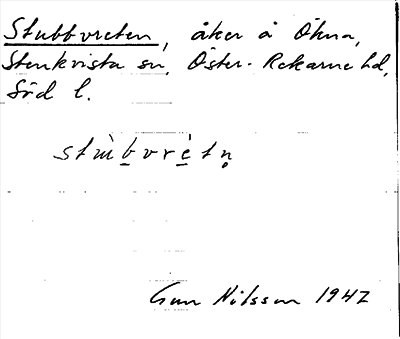 Stubbvreten, åker å Ökna,
Stenkvista sn, Öster-Rekarne hd,
Söd l.
stùbvrètn̥
Gun Nilsson 1947